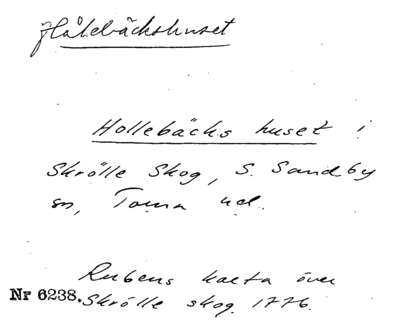 Hålebäckshuset
Hollebäcks huset i
Skrölle Skog, S. Sandby
sn, Torna hd.
Rubens karta över
Nr 6238. Skrölle skog 1776.